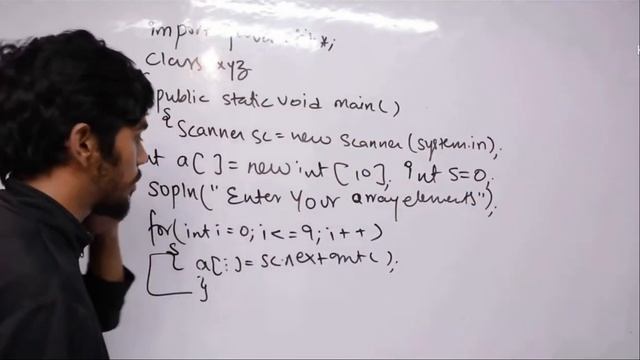 import
class xyz
{
public static void main()
{ Scanner sc = new Scanner(system.in);
int a[] = new int [10], int s=0;
sopln("Enter Your array elements");
for(int i=0; i<=9; i++)
{ a[i] = sc.nextInt();
}